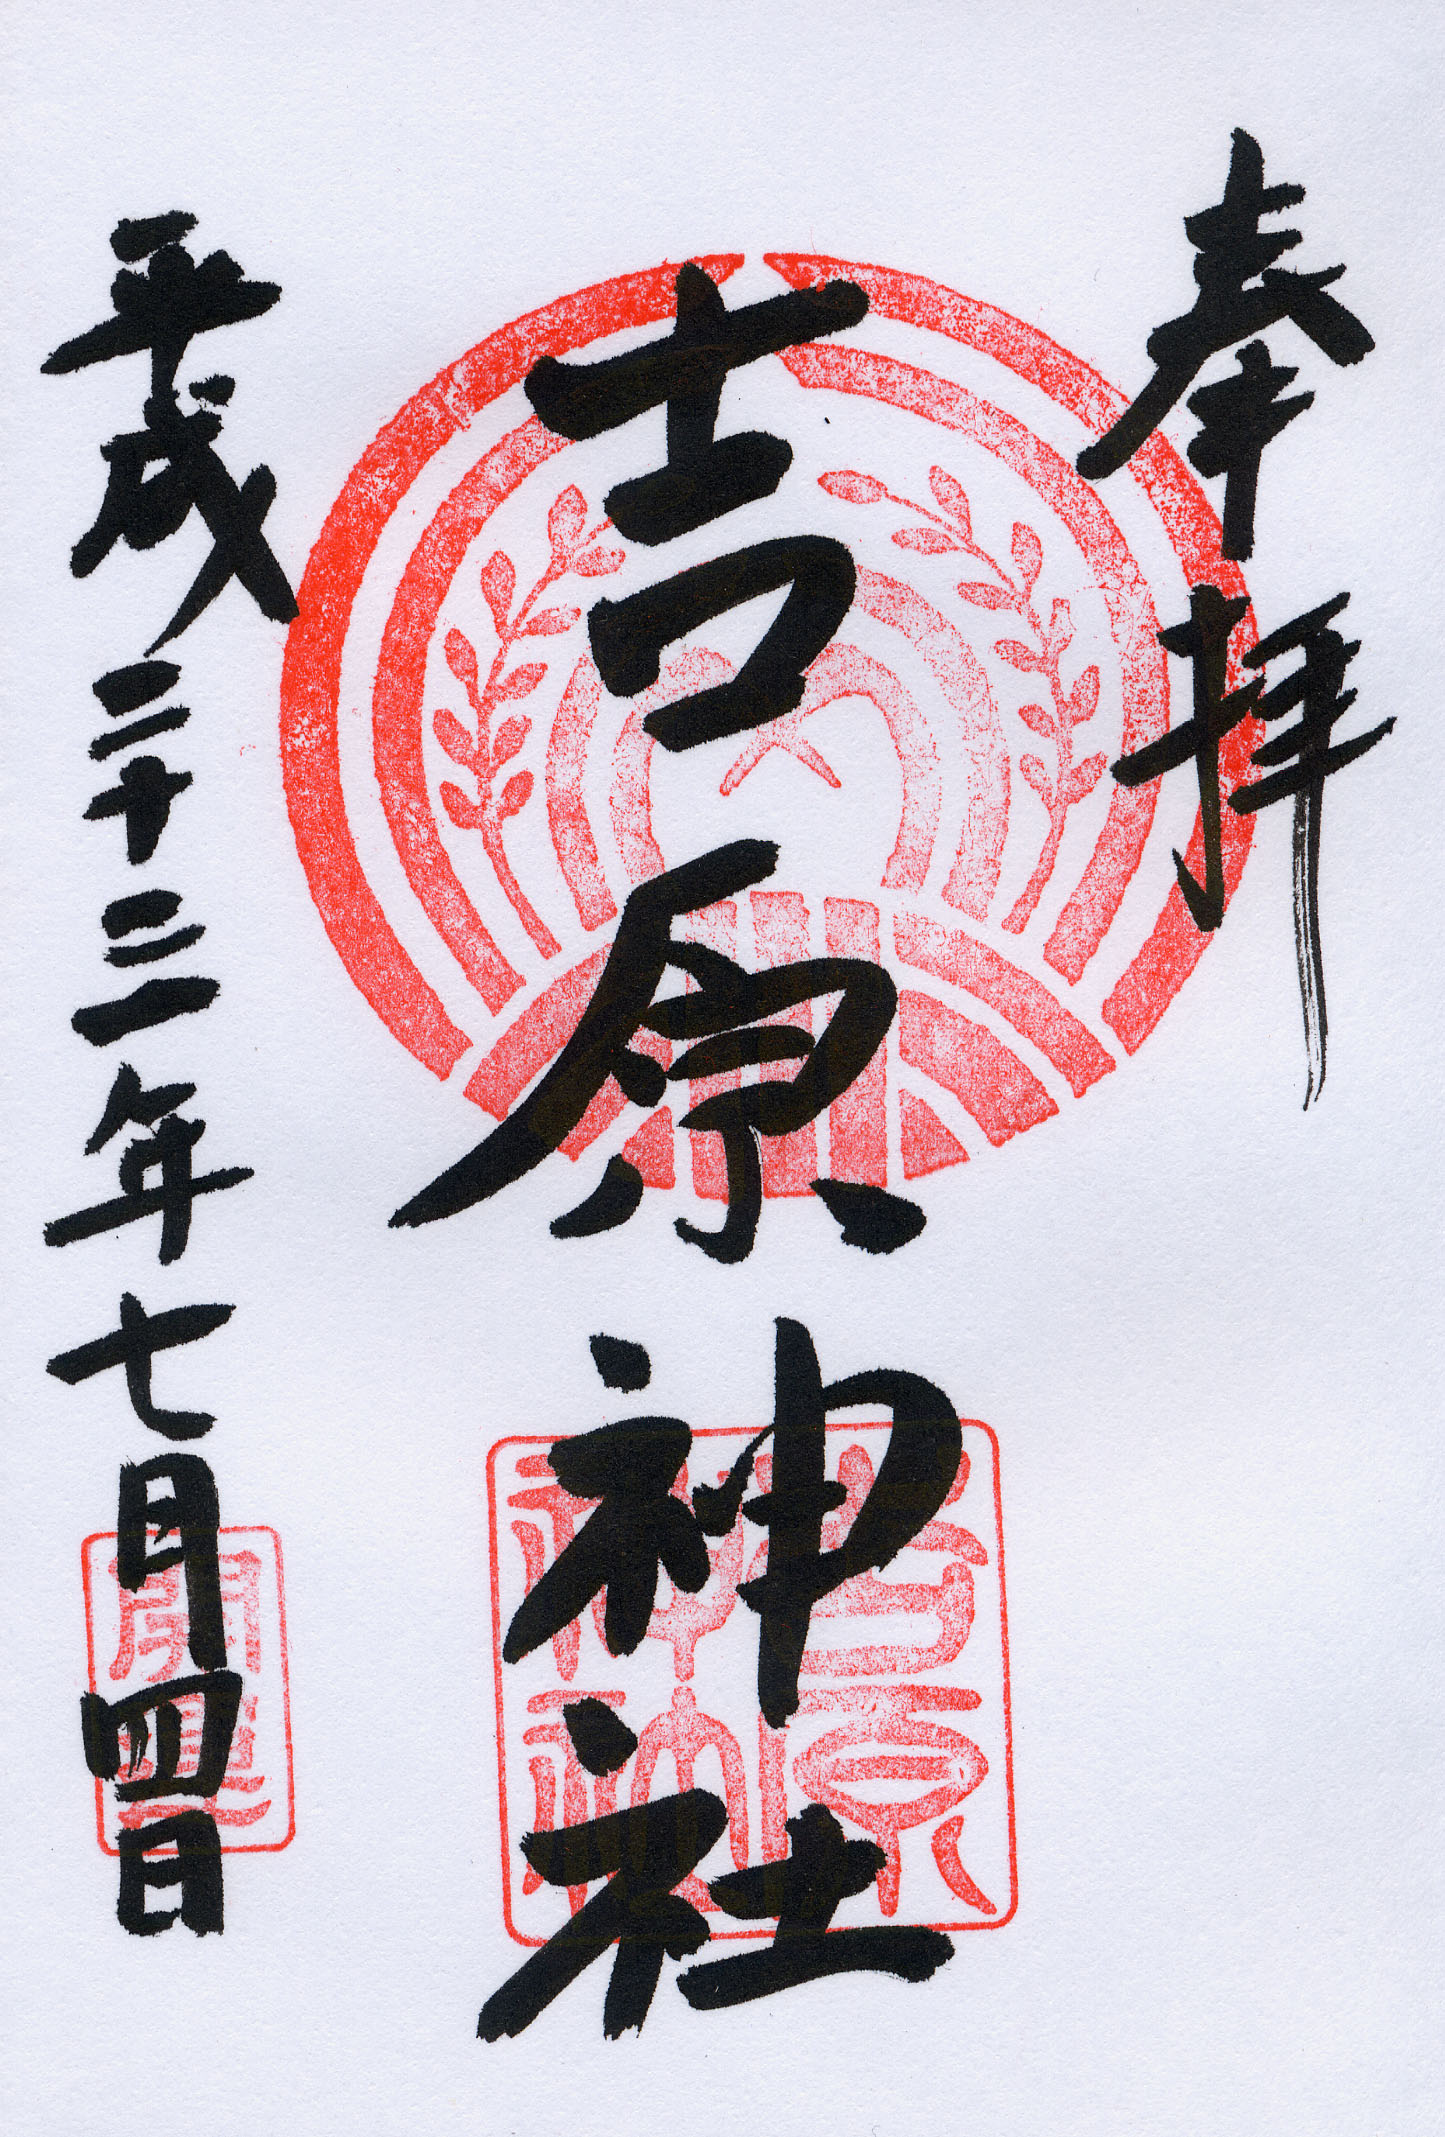 奉拝
吉原神社
吉原神社
平成二十三年七月四日
開運